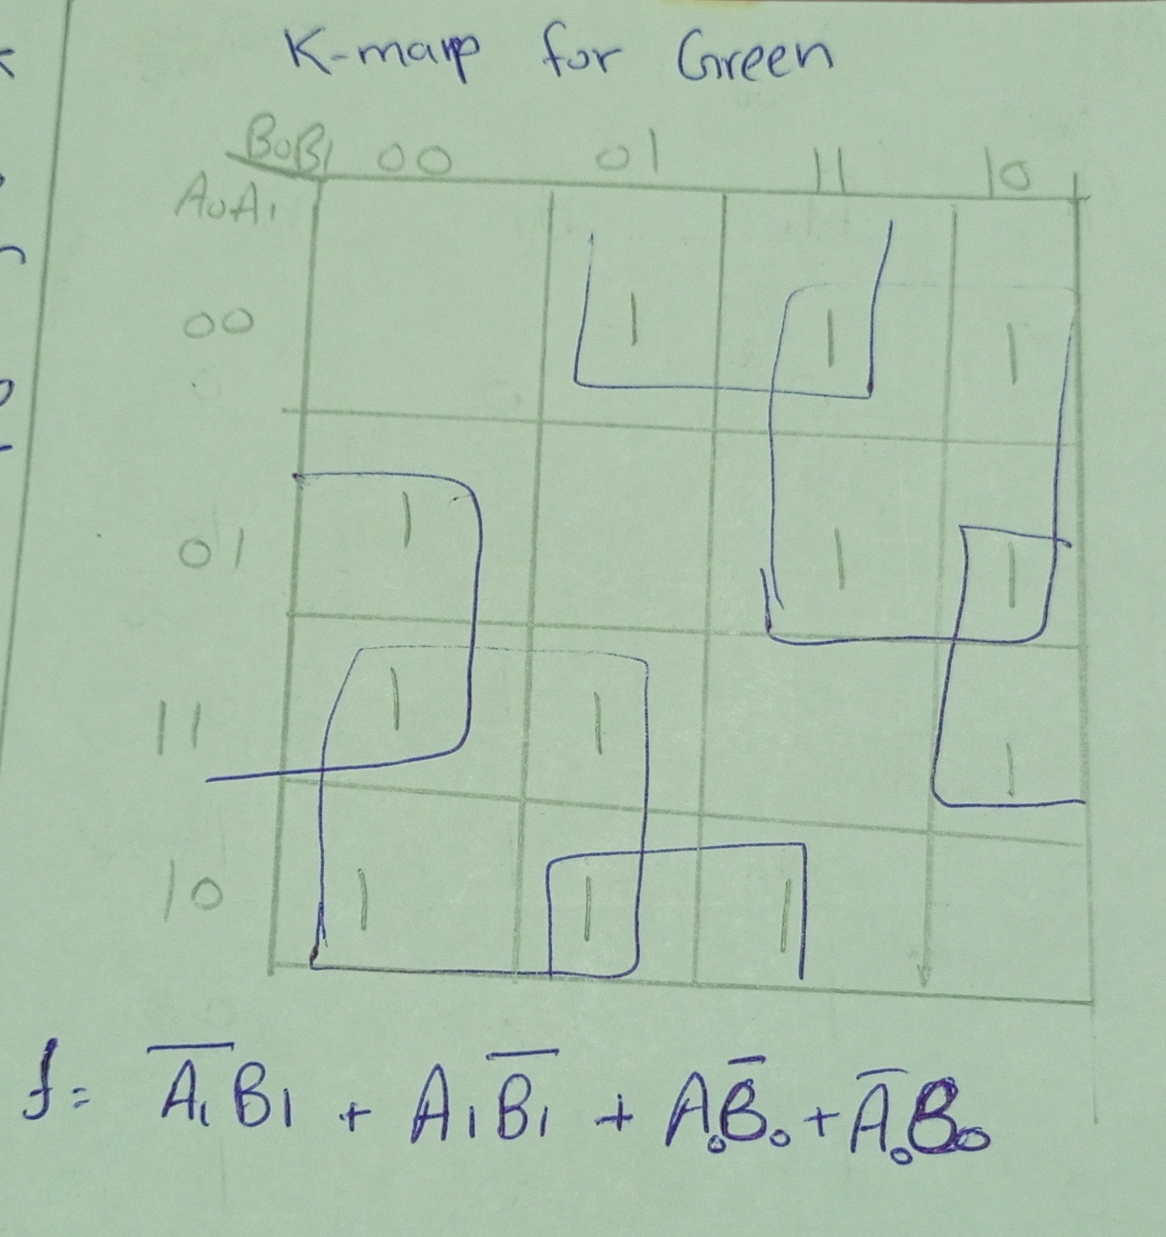 K-map for Green
B0B1 00 01 11 10
A0A1
00 1 1 1
01 1 1 1
11 1 1 1
10 1 1 1
f = A̅1 B1 + A1 B̅1 + A0 B̅0 + A̅0 B0